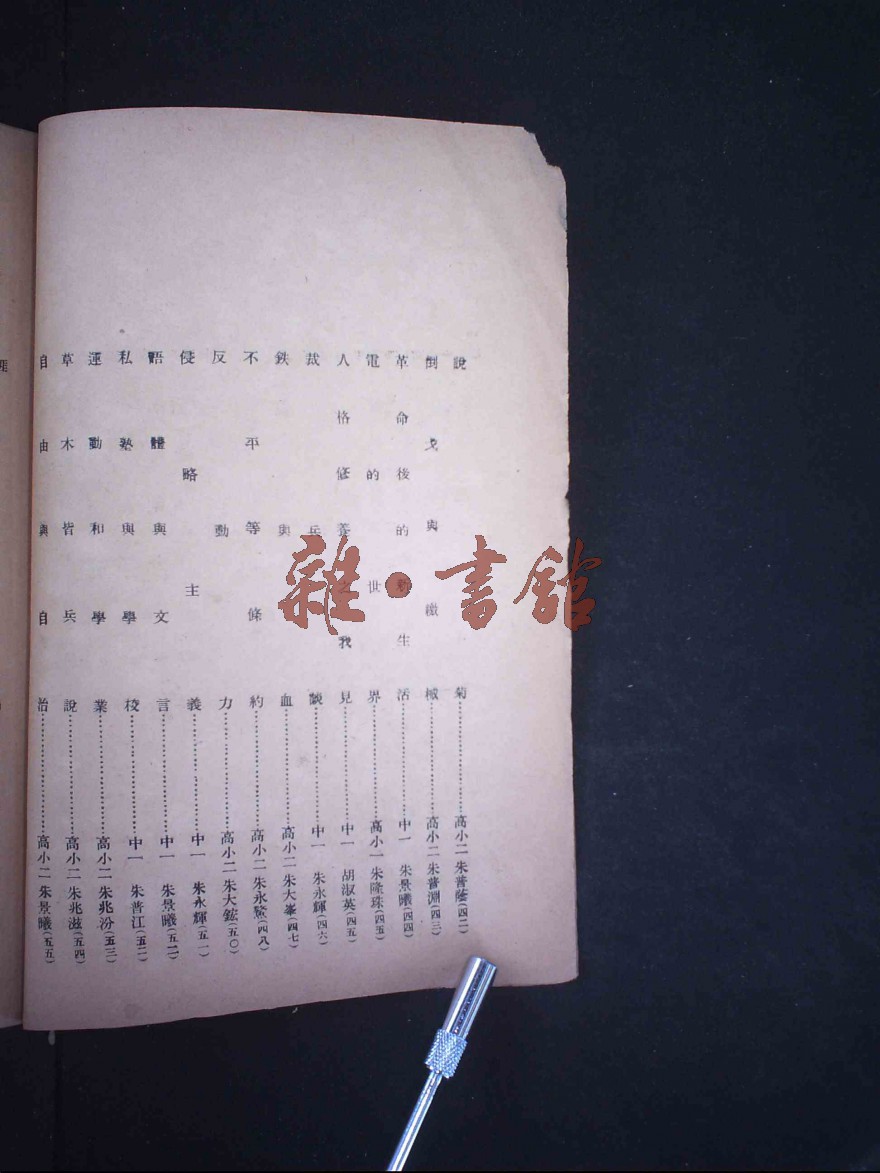 說菊⋯⋯⋯⋯⋯⋯高小二 朱普蔭(四二)
倒戈與繳械⋯⋯⋯⋯⋯⋯高小二 朱普淵(四三)
革命後的新生活⋯⋯⋯⋯⋯⋯中一 朱景曦(四四)
電的世界⋯⋯⋯⋯⋯⋯高小一 朱隆珠(四五)
人格修養之我見⋯⋯⋯⋯⋯⋯中一 胡淑英(四五)
裁兵⋯⋯⋯⋯⋯⋯中一 朱永輝(四六)
鉄與血⋯⋯⋯⋯⋯⋯高小二 朱大峯(四七)
不平等條約⋯⋯⋯⋯⋯⋯高小二 朱永鰲(四八)
反動力⋯⋯⋯⋯⋯⋯高小二 朱大鋐(五〇)
侵略主義⋯⋯⋯⋯⋯⋯中一 朱永輝(五一)
語體與文言⋯⋯⋯⋯⋯⋯中一 朱景曦(五二)
私塾與學校⋯⋯⋯⋯⋯⋯中一 朱普江(五二)
運動和學業⋯⋯⋯⋯⋯⋯高小二 朱兆汾(五三)
草木皆兵說⋯⋯⋯⋯⋯⋯高小二 朱兆滋(五四)
自由與自治⋯⋯⋯⋯⋯⋯高小二 朱景曦(五五)
雜·書館